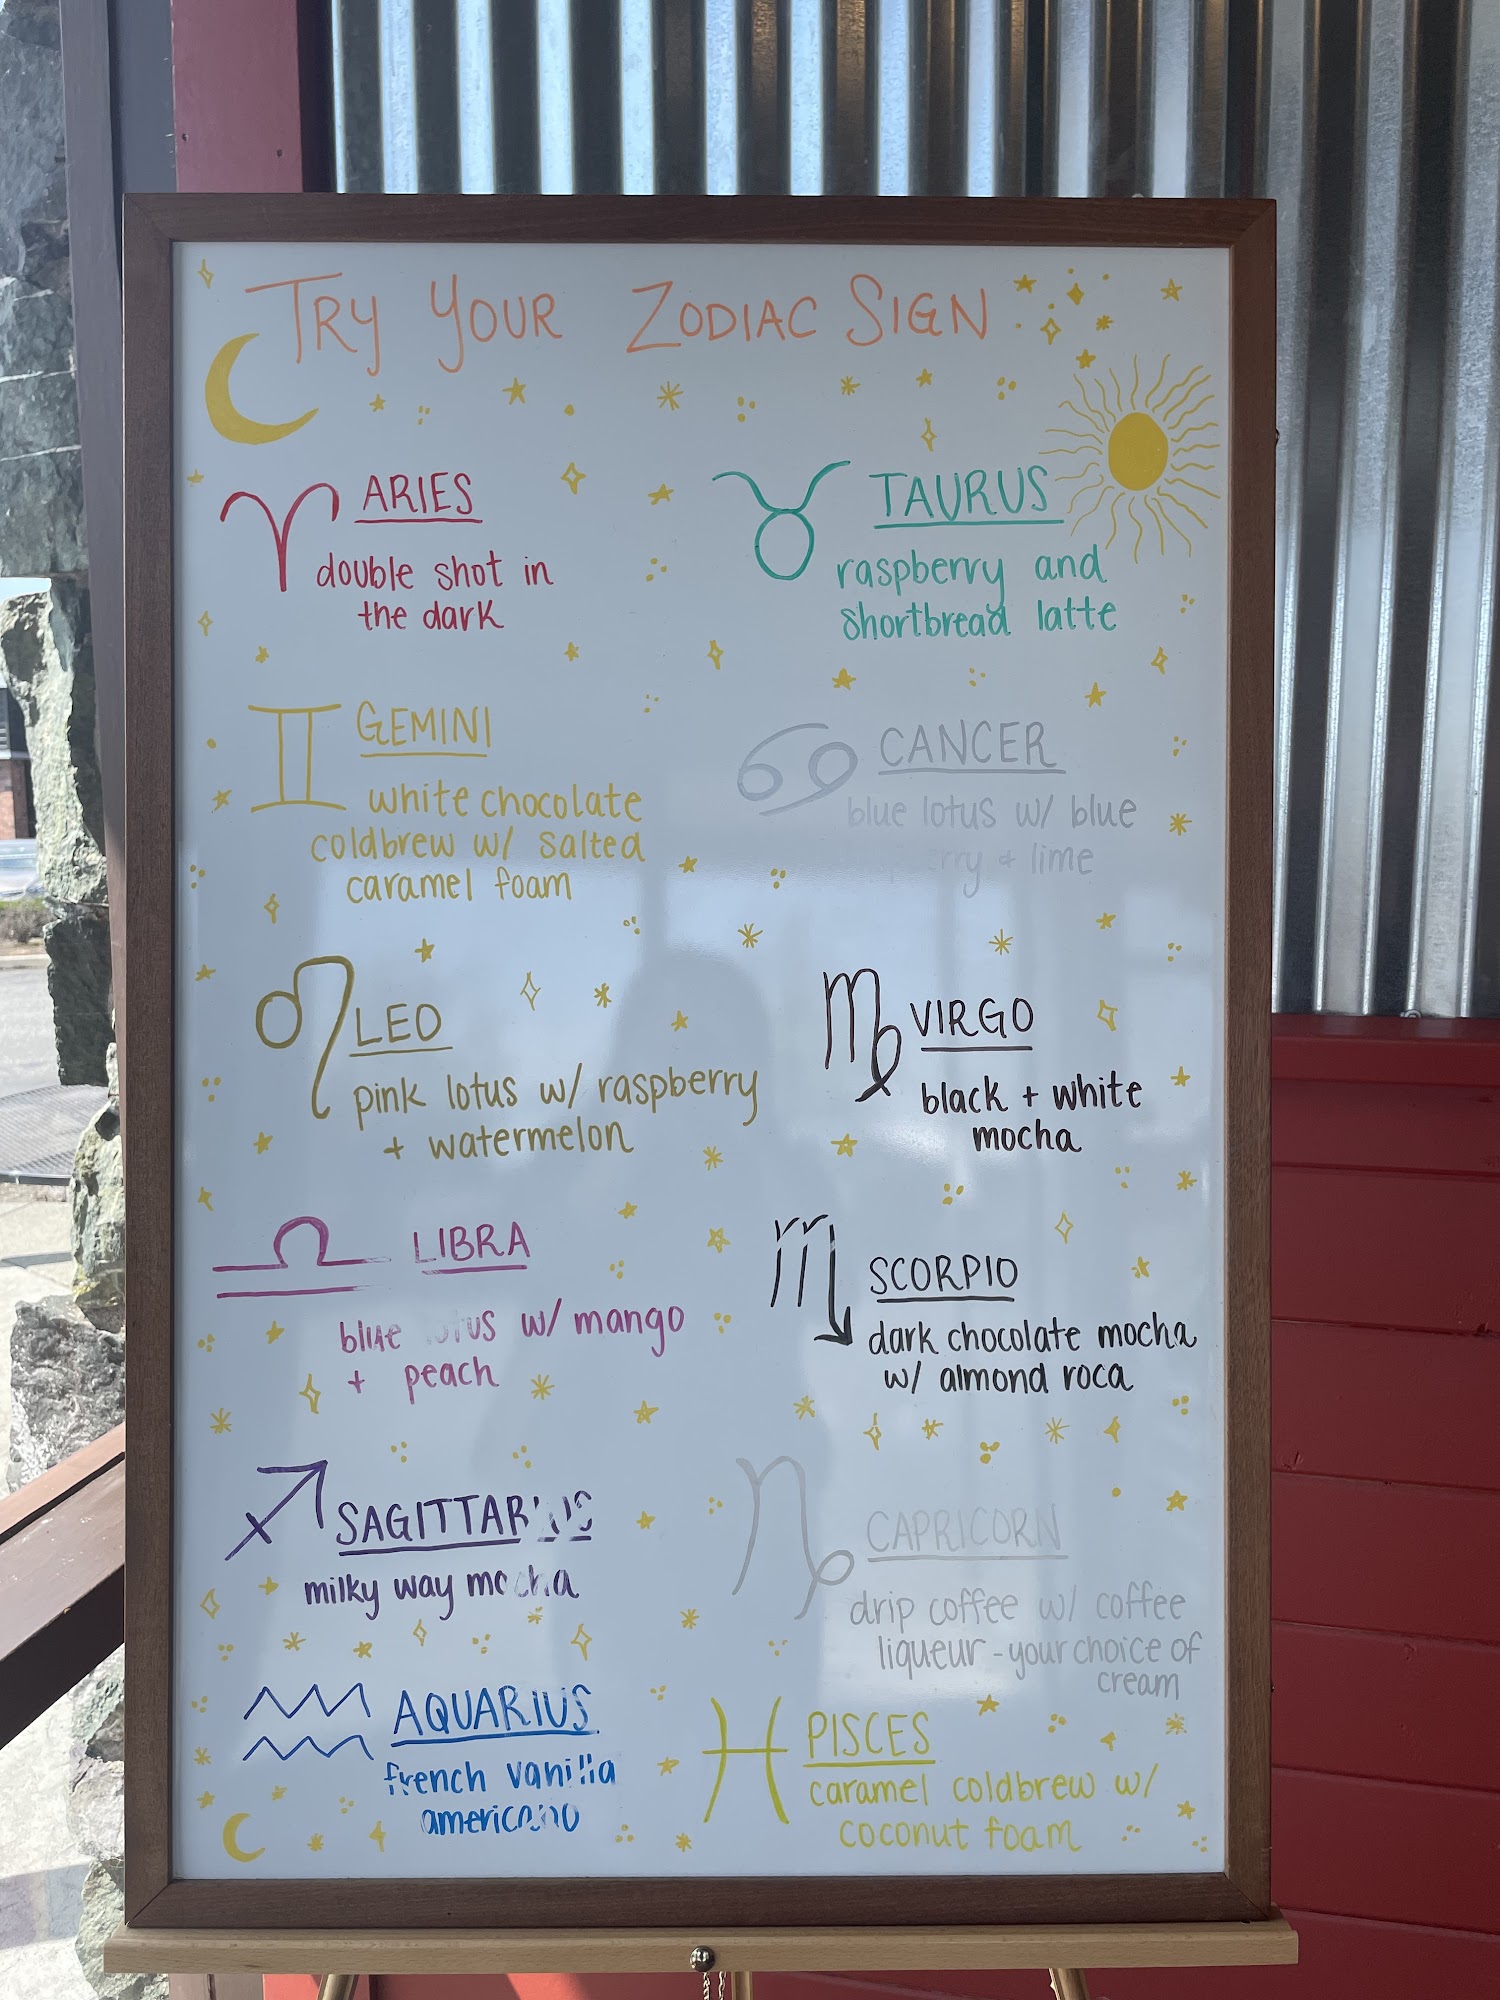 TRY YOUR ZODIAC SIGN
ARIES
double shot in
the dark
TAURUS
raspberry and
shortbread latte
GEMINI
white chocolate
coldbrew w/ salted
caramel foam
CANCER
blue lotus w/ blue
+ lime
LEO
pink lotus w/ raspberry
+ watermelon
VIRGO
black + white
mocha
LIBRA
blue lotus w/ mango
+ peach
SCORPIO
dark chocolate mocha
w/ almond roca
SAGITTARIUS
milky way mocha
CAPRICORN
drip coffee w/ coffee
liqueur - your choice of
cream
AQUARIUS
french vanilla
americano
PISCES
caramel coldbrew w/
coconut foam